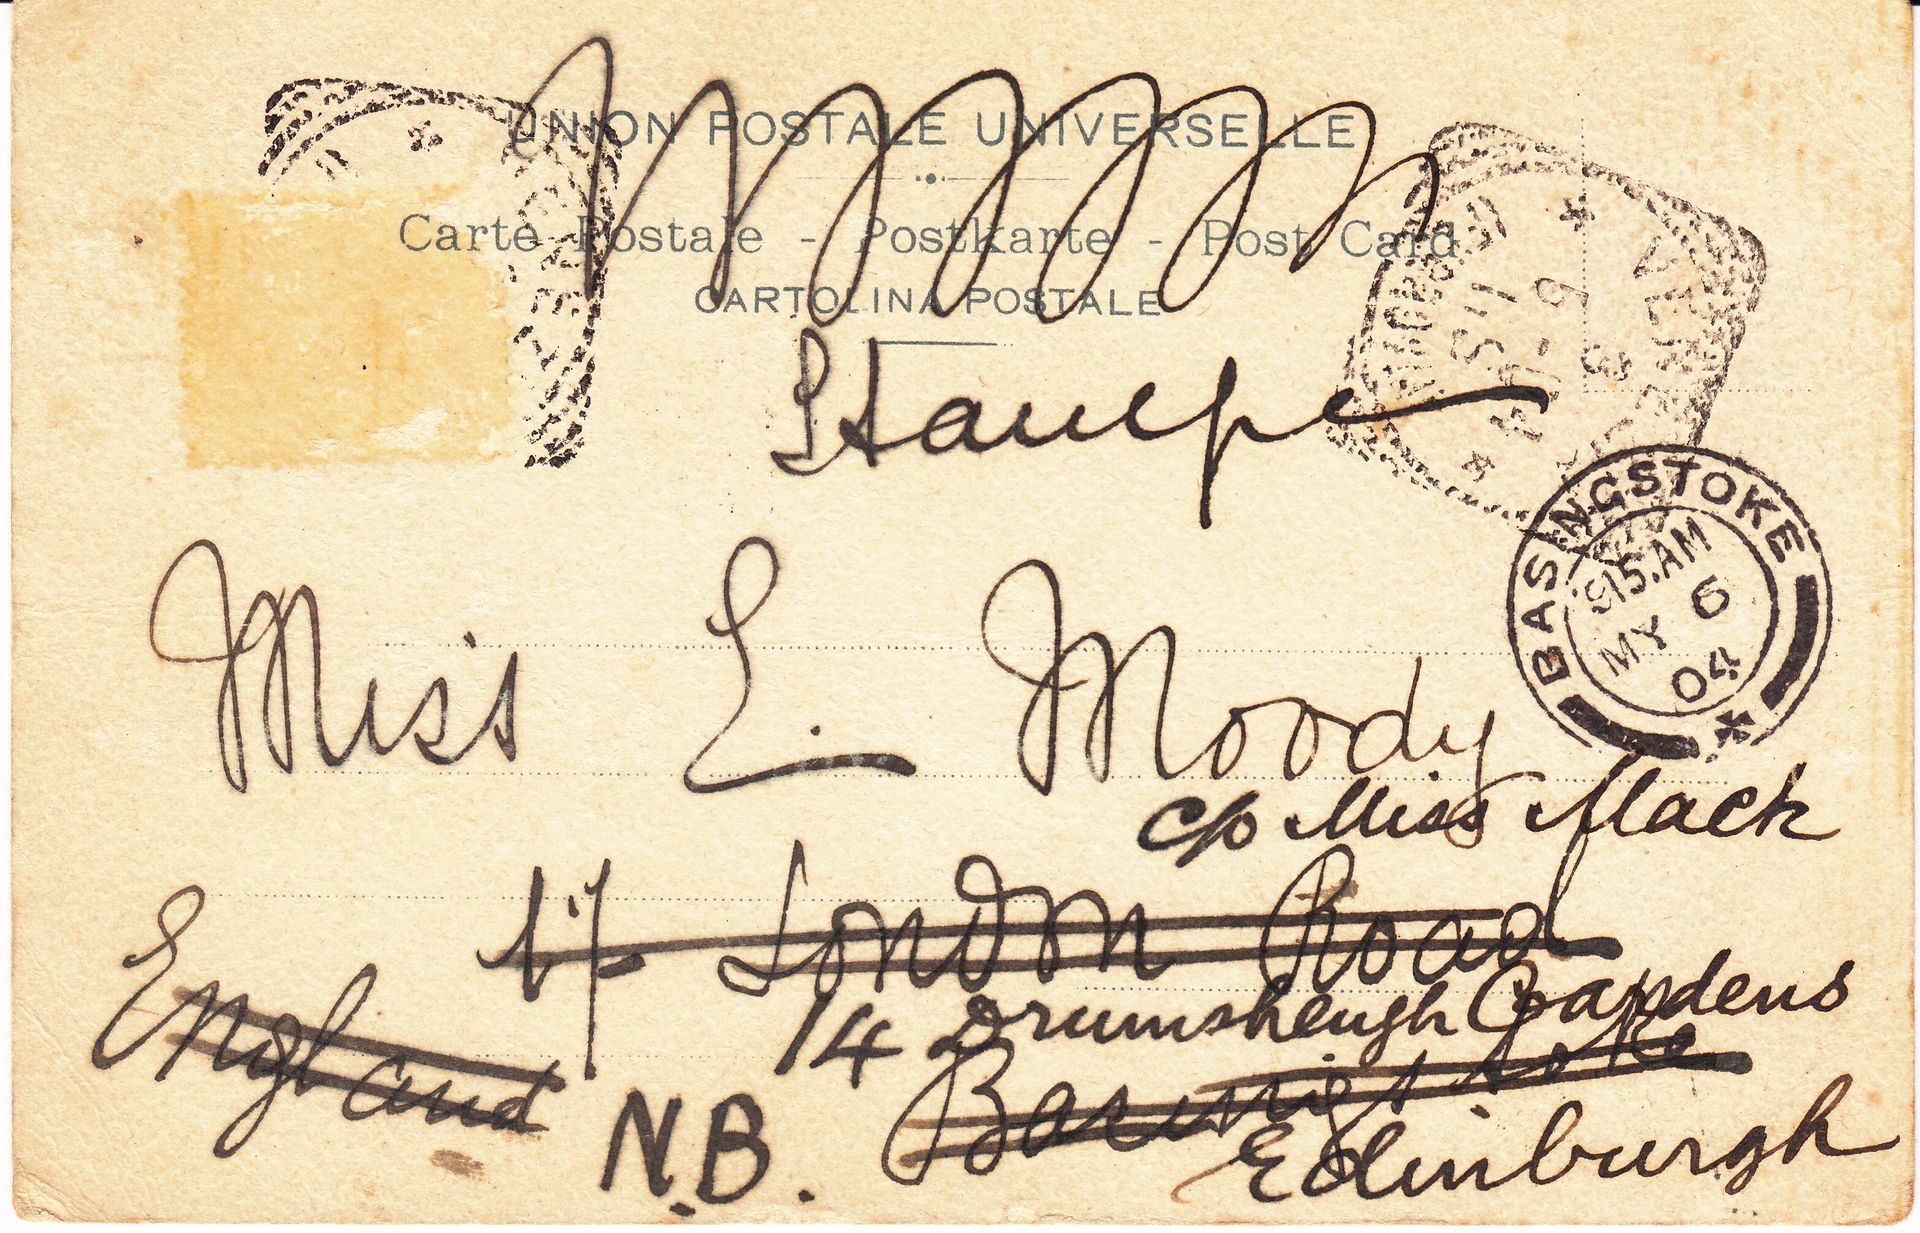 UNION POSTALE UNIVERSELLE
Carte Postale - Postkarte - Post Card
CARTOLINA POSTALE
Stampe
BASINGSTOKE
915.AM
MY 6
04
Miss E. Moody
c/o Miss Mack
17 London Road
14 Drumsheugh Gardens
England
Basingstoke
N.B.
Edinburgh